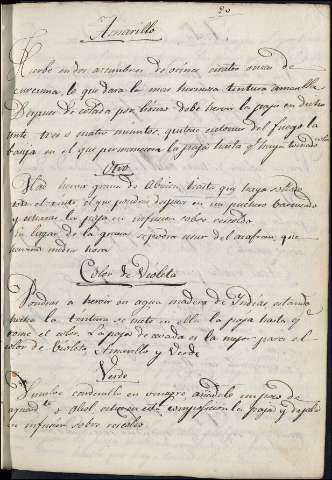 20
Amarillo
Hierbe en dos azumbres de orines, cuatro onzas de
curcuma, lo que dara la mas hermosa tintura amarilla
Despues de colada por lienzo debe hervir la paja en dicho
tinte tres o cuatro minutos, quitar entonces del fuego la
en el que permanecera la paja hasta q haya tomado color
Otro
Haz hervir grana de Aviñon hasta que haya soltado
todo el tinte, el que pondras despues en un puchero
la paja en infusion sobre rescoldo
En lugar de la grana se podra usar del azafran, que
media hora
Color de Violeta
Pondras a hervir en agua madera de Indias estando
hecha la tintura se mete en ella la paja hasta q
tome el color. La paja de cevada es la mejor para el
color de Violeta Amarillo y Verde
Verde
Disuelve cardenillo en vinagre, añadele un poco de
aguard.te o alcol esta composicion la paja y dejala
en infusion sobre rescoldo